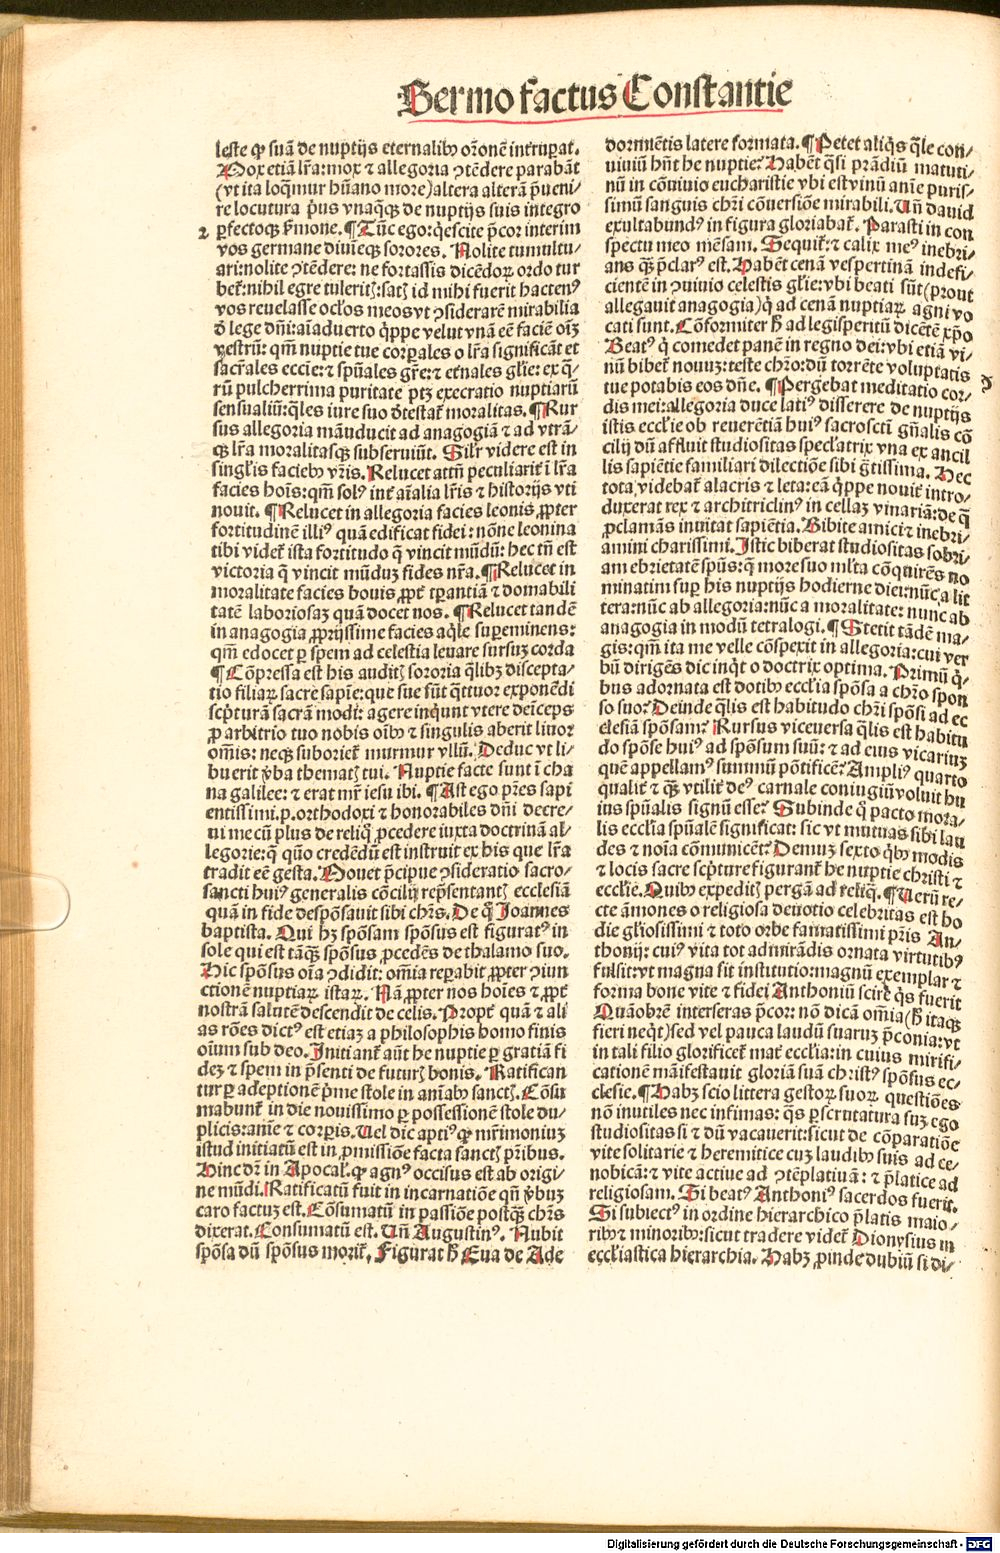 Sermo factus Constantie
leste qꝫ suā de nuptijs eternalibꝫ orōnē intrupat.
Mox etiā lr̄a: mox ⁊ allegoria ꝯtēdere parabāt
(vt ita loq̄mur hūano more) altera alterā p̄ueni/
re locutura pꝰus vnaq̄qꝫ de nuptijs suis integro
2 ꝑfectoqꝫ s̄mone. ¶ Tūc ego: q̄escite p̄cor interim
vos germane diuīeqꝫ sorores. Nolite tumultu/
ari: nolite ꝯtēdere: ne fortassis dicēdoꝝ ordo tur
bet᷑: nihil egre tuleritꝭ: satꝭ id mihi fuerit hactenꝰ
vos reuelasse oclꝰos meos vt ꝯsiderarē mirabilia
d̄ lege dn̄i: aīaduerto q̄ppe velut vnā eē faciē oīꝫ
vestrū: qm̄ nuptie tue corꝑales o lr̄a significāt et
sacrꝰales eccīe: ⁊ spūales gr̄e: ⁊ et̄nales glꝰie: ex q̄/
rū pulcherrima puritate ptꝫ execratio nuptiarū
sensualiū: q̄les iure suo d̄testat᷑ moralitas. ¶ Rur
sus allegoria māuducit ad anagogiā ⁊ ad vtrā/
qꝫ lr̄a moralitasqꝫ subseruiūt. Silr̄ videre est in
singlꝰis faciebꝫ vr̄is. Relucet attn̄ peculiarit᷑ ī lr̄a
facies hoīs: qm̄ solꝰ int᷑ aīalia lr̄is ⁊ historijs vti
nouit. ¶ Relucet in allegoria facies leonis ꝓpter
fortitudinē illiꝰ quā edificat fidei: nōne leonina
tibi videt᷑ ista fortitudo q̄ vincit mūdū: hec tn̄ est
victoria q̄ vincit mūduꝫ fides nr̄a. ¶ Relucet in
moralitate facies bouis ꝓpt᷑ tꝑantiā ⁊ domabili
tatē laboriosaꝫ quā docet nos. ¶ Relucet tandē
in anagogia ꝓprijssime facies aq̄le suꝑeminens:
qm̄ edocet ꝑ spem ad celestia leuare sursuꝫ corda
¶ Cōpressa est his auditꝭ sororia q̄libꝫ discepta/
tio filiaꝝ sacre sapīe: que sue sūt q̄ttuor exponēdi
scp̄turā sacrā modi: agere inq̄unt vtere deīceps
ꝓ arbitrio tuo nobis oībꝫ ⁊ singulis aberit liuor
om̄is: neqꝫ suboriet᷑ murmur vllū. Deduc vt li/
buerit v̄ba thematꝭ tui. Nuptie facte sunt ī cha
na galilee: ⁊ erat mr̄ iesu ibi. ¶ Ast ego pr̄es sapi
entissimi. p. orthodoxi ⁊ honorabiles dn̄i decre/
ui mecū plus de reliqꝰ ꝓcedere iuxta doctrinā al/
legorie: q̄ quo credēdū est instruit ex his que lr̄a
tradit eē gesta. Mouet p̄cipue ꝯsideratio sacro/
sancti huiꝰ generalis cōcilij rep̄sentantꝭ ecclesiā
quā in fide despōsauit sibi chr̄s. De q̄ Joannes
baptista. Qui hꝫ spōsam spōsus est figuratꝰ in
sole qui est tāqꝫ spōsus ꝓcedēs de thalamo suo.
Hic spōsus oīa ꝯdidit: om̄ia reꝑabit ꝓpter ꝯiun
ctionem nuptiaꝝ istaꝝ. Nā ꝓpter nos hoīes ⁊ ꝓpt᷑
nostrā salutē descendit de celis. Propt᷑ quā ⁊ ali
as rōes dictꝰ est etiaꝫ a philosophis homo finis
oīum sub deo. Initiant᷑ aūt he nuptie ꝑ gratiā fi
deꝫ ⁊ spem in p̄senti de futurꝭ bonis. Ratifican
tur ꝑ adeptionē p̄me stole in aīabꝫ sanctꝭ. Cōsu
mabunt᷑ in die nouissimo ꝑ possessionē stole du/
plicis: aīe ⁊ corꝑis. Uel dīc aptiꝰ qꝫ mr̄imoniuꝫ
istud initiatū est in ꝓmissiōe facta sanctꝭ pr̄ibus.
Hinc dr̄ in Apocal᷑. qꝫ agnꝰ occisus est ab origi/
ne mūdi. Ratificatū fuit in incarnatiōe qn̄ v̄buꝫ
caro factuꝫ est. Cōsumatū in passiōe postqꝫ chr̄s
dixerat. Consumatū est. Un̄ Augustinꝰ. Nubit
spōsa dū spōsus morit᷑. Figurat h̄ Eua de Ade
dormiētis latere formata. ¶ Petet aliq̄s q̄le con/
uiuiū hn̄t he nuptie? Habēt q̄si prādiū matuti/
nū in cōuiuio eucharistie vbi est vinū aīe puris/
simū sanguis chr̄i cōuersiōe mirabili. Un̄ dauid
exultabundꝰ in figura gloriabat᷑. Parasti in con
spectu meo mēsam. Sequit᷑: ⁊ calix meꝰ inebri/
ans qꝫ p̄clarꝰ est. Habēt cenā vespertinā indefi/
cientē in ꝯuiuio celestis glꝰie: vbi beati sūt (prout
allegauit anagogia) q̄ ad cenā nuptiaꝝ agni vo
cati sunt. Cōformiter h̄ ad legisperitū dicētē xp̄o
Beatꝰ q̄ comedet panē in regno dei: vbi etiā vi/
nū bibet᷑ nouuꝫ: teste chr̄o: dū torrēte voluptatis
tue potabis eos dn̄e. ¶ Pergebat meditatio cor/
dis mei: allegoria duce latiꝰ disserere de nuptijs
istis ecclꝰie ob reuerētiā huiꝰ sacroscti gn̄alis cō
cilij dū affluit studiositas speclꝰatrix vna ex ancil
lis sapiētie familiari dilectiōe sibi g̅tissima. Hec
tota videbat᷑ alacris ⁊ leta: eā q̄ppe nouit᷑ intro/
duxerat rex ⁊ architriclinꝰ in cellaꝫ vinariā: de q̄
ꝓclamās inuitat sapiētia. Bibite amici ⁊ inebri/
amini charissimi. Istic biberat studiositas sobri/
am ebrietatē spūs: q̄ more suo mlꝰta cōquirēs no
minatim suꝑ his nuptijs hodierne die: nūc a lit
tera: nūc ab allegoria: nūc a moralitate: nunc ab
anagogia in modū tetralogi. ¶ Stetit tādē ma/
gis: qm̄ ita me velle cōspexit in allegoria: cui ver
bū dirigēs dic inq̄t o doctrix optima. Primū q̄/
bus adornata est dotibꝫ ecclꝰia spōsa a chr̄o spon
so suo? Deinde q̄lis est habitudo chr̄i spōsi ad ec
clesiā spōsam? Rursus viceuersa q̄lis est habitu
do spōse huiꝰ ad spōsum suū: ⁊ ad eius vicariuꝫ
quē appellamꝰ summū pōtificē? Ampliꝰ quarto
qualit᷑ ⁊ qꝫ vtilit᷑ deꝰ carnale coniugiū voluit hu
ius spūalis signū esse? Subinde q̄ pacto mora/
lis ecclꝰia spūalē significat: sic vt mutuas sibi lau
des ⁊ noīa cōmunicēt? Demuꝫ sexto q̄bꝫ modis
⁊ locis sacre scp̄ture figurant᷑ he nuptie christi ⁊
ecclꝰie. Quibꝫ expeditꝭ pergā ad reliq̄. ¶ Uerū re/
cte āmones o religiosa deuotio celebritas est ho
die glꝰiosissimi ⁊ toto orbe famatissimi pr̄is An/
thonij: cuiꝰ vita tot admirādis ornata virtutibꝰ
fulsit: vt magna sit institutio: magnū exemplar ⁊
forma bone vite ⁊ fidei Anthoniū scire q̄s fuerit
Quāobrē interseras p̄cor: nō dicā om̄ia (h̄ itaqꝫ
fieri neq̄t) sed vel pauca laudū suaruꝫ p̄conia: vt
in tali filio glorificet᷑ mat᷑ ecclꝰia: in cuius mirifi/
catione māifestauit gloriā suā christꝰ spōsus ec/
clesie. ¶ Habꝫ scio littera gestoꝝ suoꝝ questiōes
nō inutiles nec infimas: q̄s ꝑscrutatura suꝫ ego
studiositas si ⁊ dū vacauerit: sicut de cōparatiōe
vite solitarie ⁊ heremitice cuꝫ laudibꝫ suis ad ce/
nobicā: ⁊ vite actiue ad ꝯtēplatiuā: ⁊ p̄latice ad
religiosam. Si beatꝰ Anthoniꝰ sacerdos fuerit.
Si subiectꝰ in ordine hierarchico p̄latis maio/
ribꝫ ⁊ minoribꝫ: sicut tradere videt᷑ Dionysius in
ecclꝰiastica hierarchia. Habꝫ ꝓinde dubiū si di/
Digitalisierung gefördert durch die Deutsche Forschungsgemeinschaft - DFG